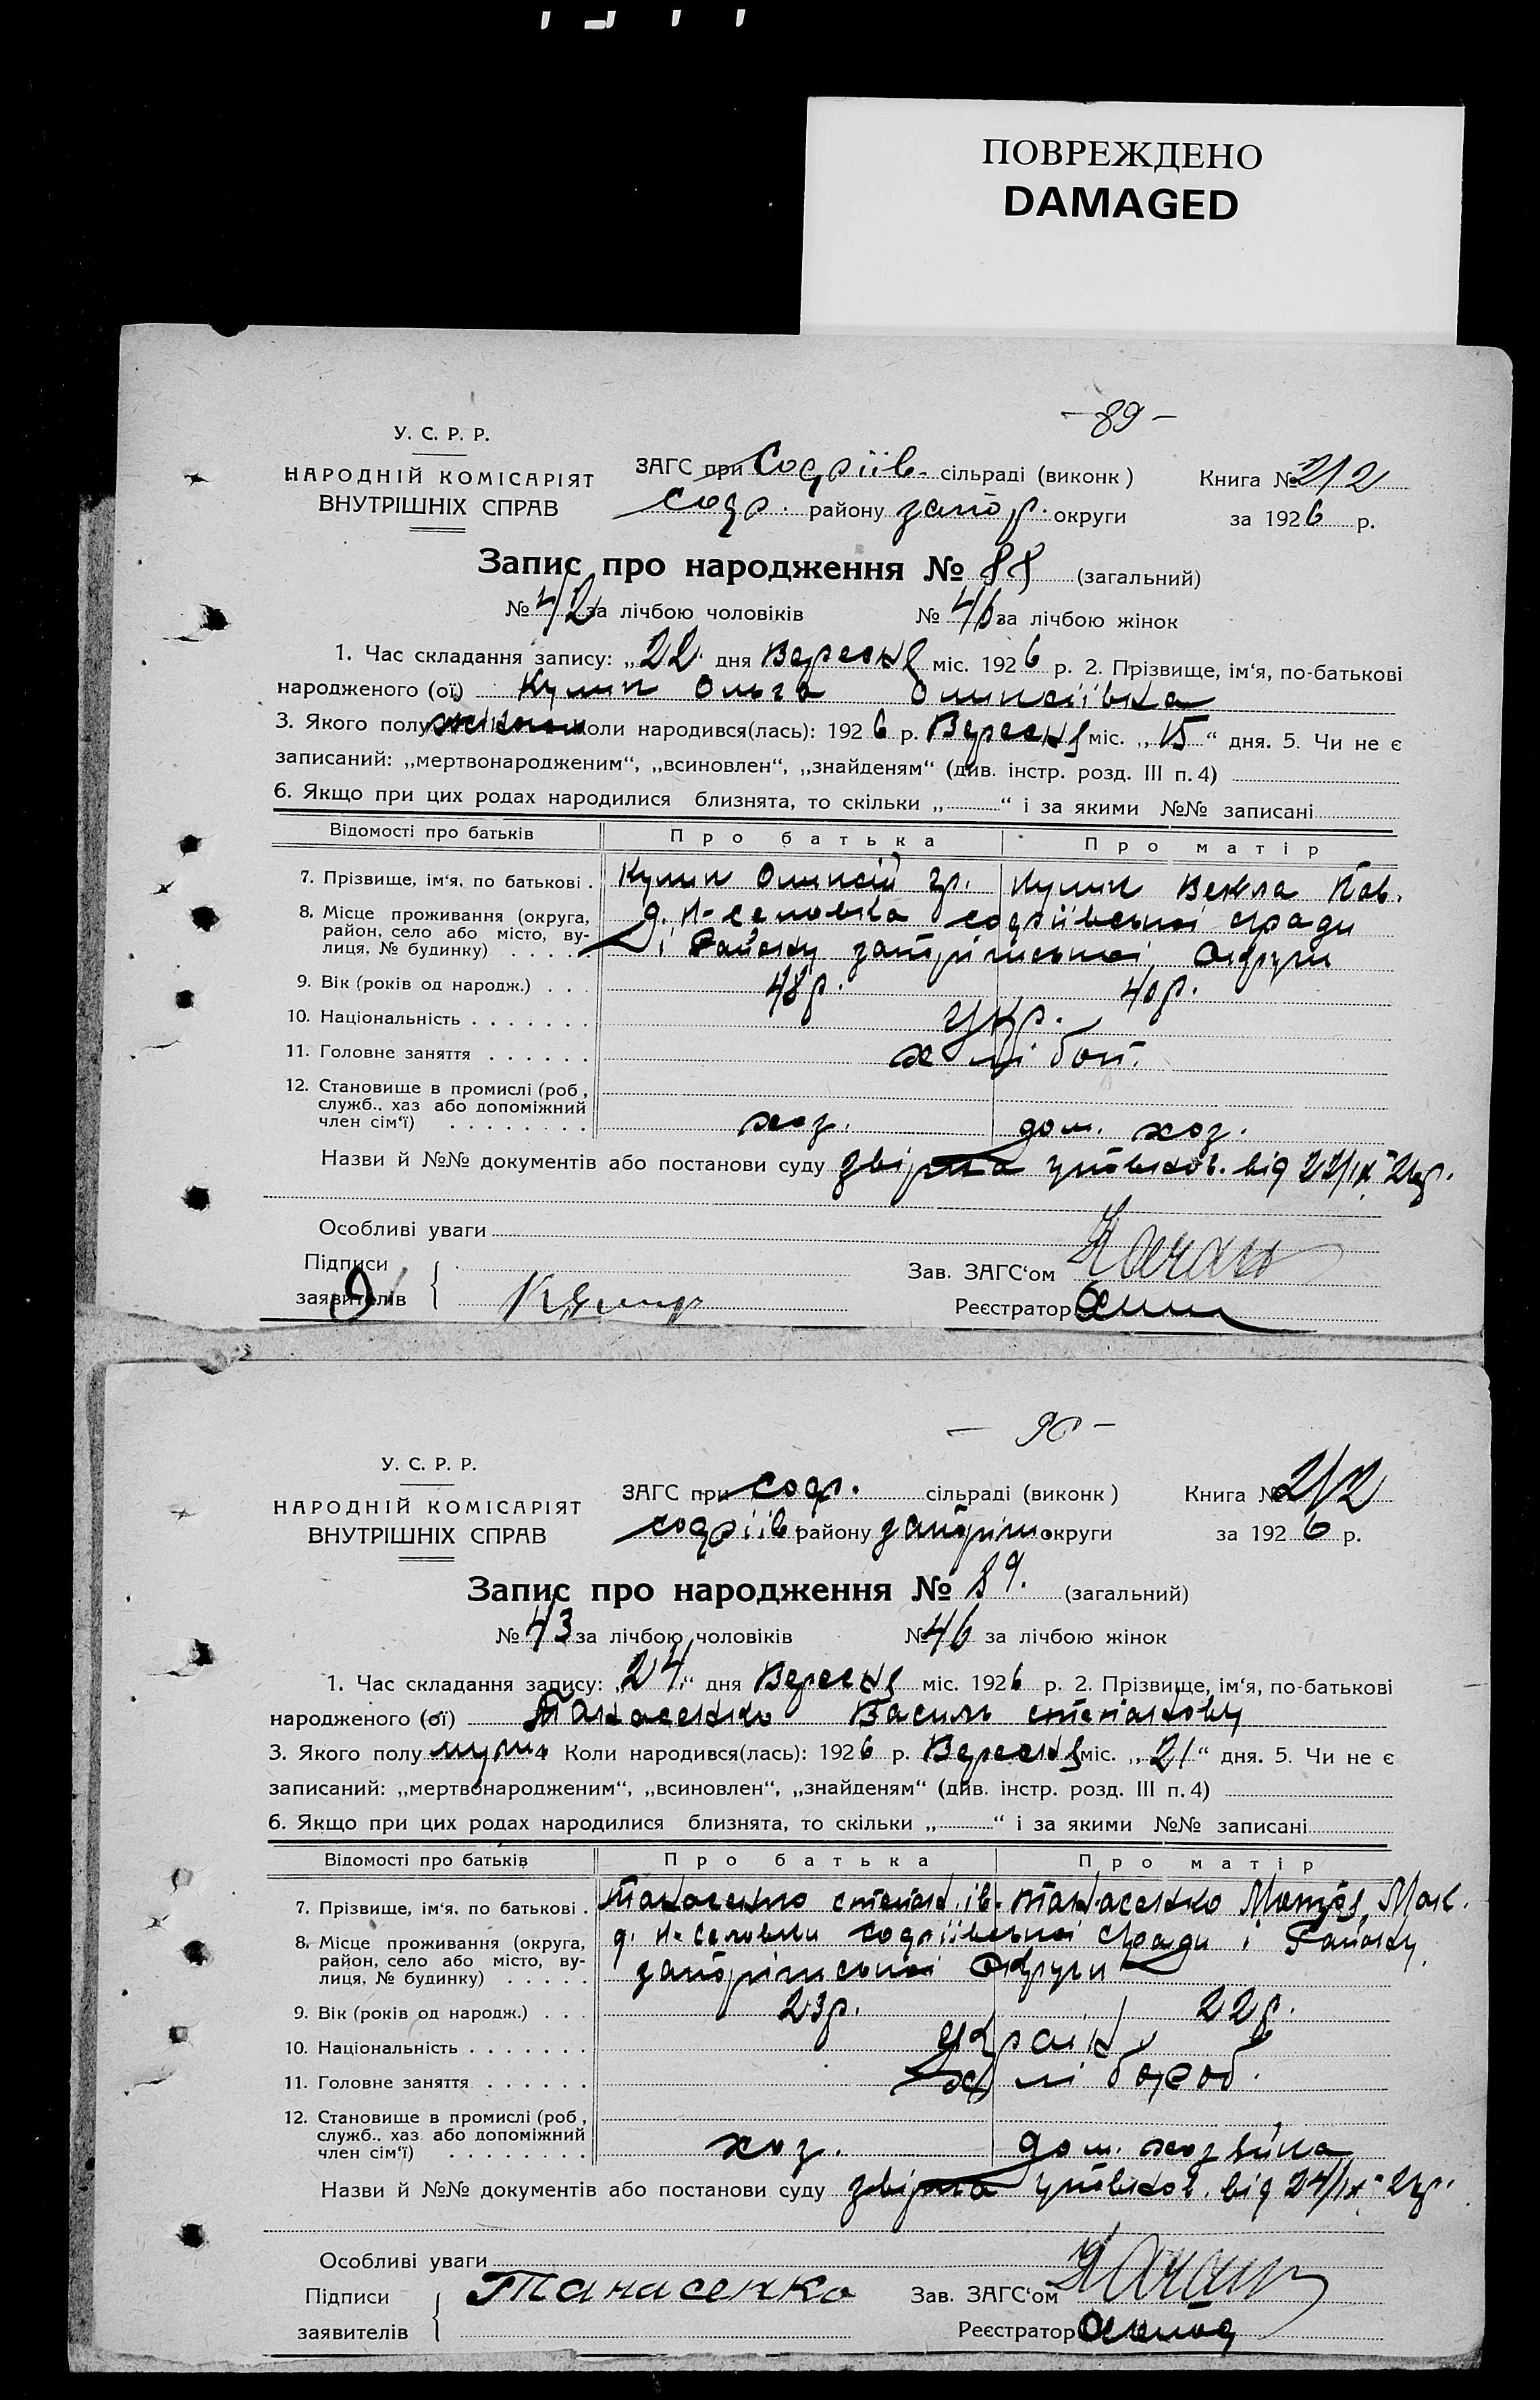 ПОВРЕЖДЕНО
DAMAGED
— 89 —
У. С. Р. Р.
НАРОДНІЙ КОМІСАРІЯТ
ВНУТРІШНІХ СПРАВ
ЗАГС при Софіїв. сільраді (виконк)
Соф. району запор. округи
Книга № 212
за 1926 р.
Запис про народження № 88 (загальний)
№ 42 за лічбою чоловіків № 46 за лічбою жінок
1. Час складання запису: „22" дня Вересня міс. 1926 р. 2. Прізвище, ім'я, по-батькові
народженого (ої) Ольга
3. Якого полу Коли народився(лась): 1926 р. Вересня міс. „15" дня. 5. Чи не є
записаний: „мертвонародженим", „всиновлен", „знайденям" (див. інстр. розд. III п. 4)
6. Якщо при цих родах народилися близнята, то скільки „ " і за якими №№ записані
Відомості про батьків Про батька Про матір
7. Прізвище, ім'я, по батькові . гр. Векла Пав.
8. Місце проживання (округа, район, село або місто, вулиця, № будинку) . . . . софіївської сради
і Району запорізської Округи
9. Вік (років од народж.) . . . 48 р. 40 р.
10. Національність . . . . . . . укр.
11. Головне заняття . . . . . .
12. Становище в промислі (роб, служб.. хаз або допоміжний член сім'ї) . . . . . . . . хоз. дом. хоз.
Назви й №№ документів або постанови суду від 22/IX-26р.
Особливі уваги
Підписи
заявителів
Зав. ЗАГС'ом
Реєстратор
— 90 —
У. С. Р. Р.
НАРОДНІЙ КОМІСАРІЯТ
ВНУТРІШНІХ СПРАВ
ЗАГС при Соф. сільраді (виконк)
софіїв району запоріж. округи
Книга № 212
за 1926 р.
Запис про народження № 89. (загальний)
№ 43 за лічбою чоловіків № 46 за лічбою жінок
1. Час складання запису: „24" дня Вересня міс. 1926 р. 2. Прізвище, ім'я, по-батькові
народженого (ої) Танасенко Василь степанову
3. Якого полу муж. 4 Коли народився(лась): 1926 р. Вересня міс. „21" дня. 5. Чи не є
записаний: „мертвонародженим", „всиновлен", „знайденям" (див. інстр. розд. III п. 4)
6. Якщо при цих родах народилися близнята, то скільки „ " і за якими №№ записані
Відомості про батьків Про батька Про матір
7. Прізвище, ім'я, по батькові . Танасенко степан ів. Танасенко Мак.
8. Місце проживання (округа, район, село або місто, вулиця, № будинку) . . . . . софіївської Сради і Району
запорізської Округи
9. Вік (років од народж.) . . . 23 р. 22 р.
10. Національність . . . . . . . україн.
11. Головне заняття . . . . . . хлібороб.
12. Становище в промислі (роб, служб.. хаз або допоміжний член сім'ї) . . . . . . . . хоз. дом. хозяйка
Назви й №№ документів або постанови суду від 24/IX-26р.
Особливі уваги
Підписи
заявителів
Танасенко
Зав. ЗАГС'ом
Реєстратор